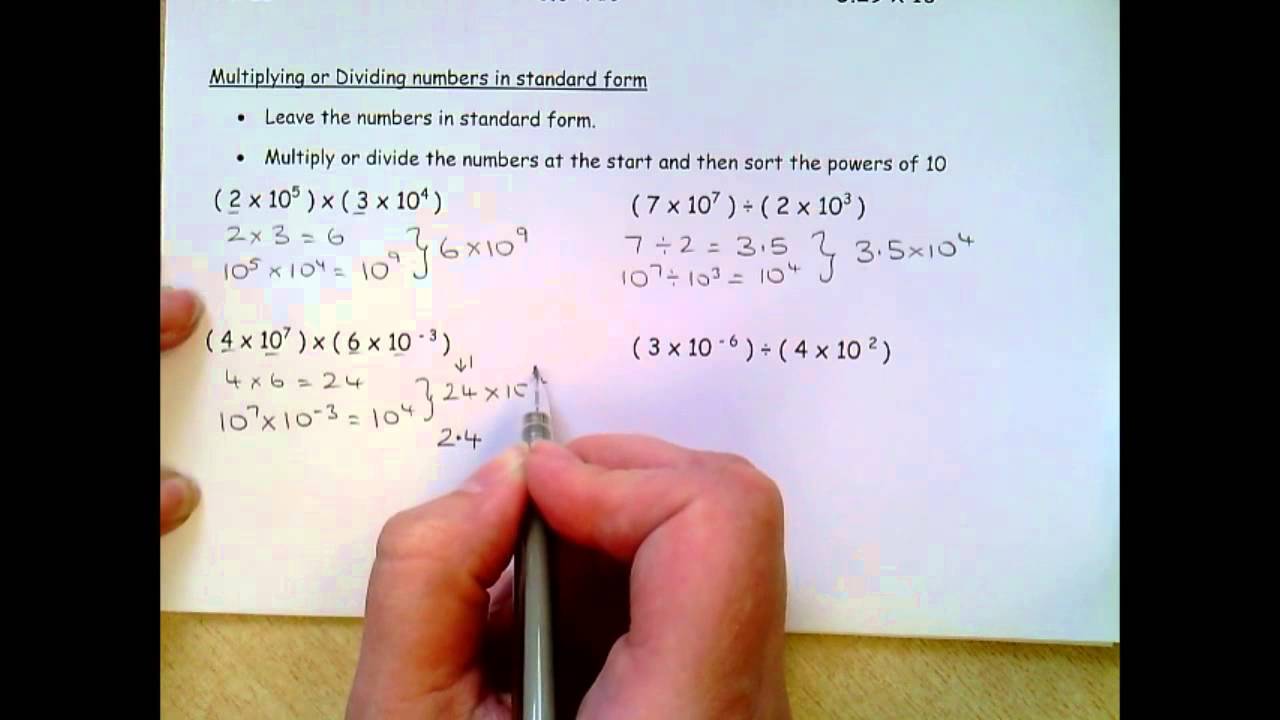 Multiplying or Dividing numbers in standard form
• Leave the numbers in standard form.
• Multiply or divide the numbers at the start and then sort the powers of 10
( 2 x 10⁵ ) x ( 3 x 10⁴ )
2 × 3 = 6
10⁵ × 10⁴ = 10⁹
} 6 × 10⁹
( 7 x 10⁷ ) ÷ ( 2 x 10³ )
7 ÷ 2 = 3·5
10⁷ ÷ 10³ = 10⁴
} 3·5 × 10⁴
( 4 x 10⁷ ) x ( 6 x 10⁻³ )
4 × 6 = 24
10⁷ × 10⁻³ = 10⁴
↓1
} 24 × 10
2·4
( 3 x 10⁻⁶ ) ÷ ( 4 x 10² )